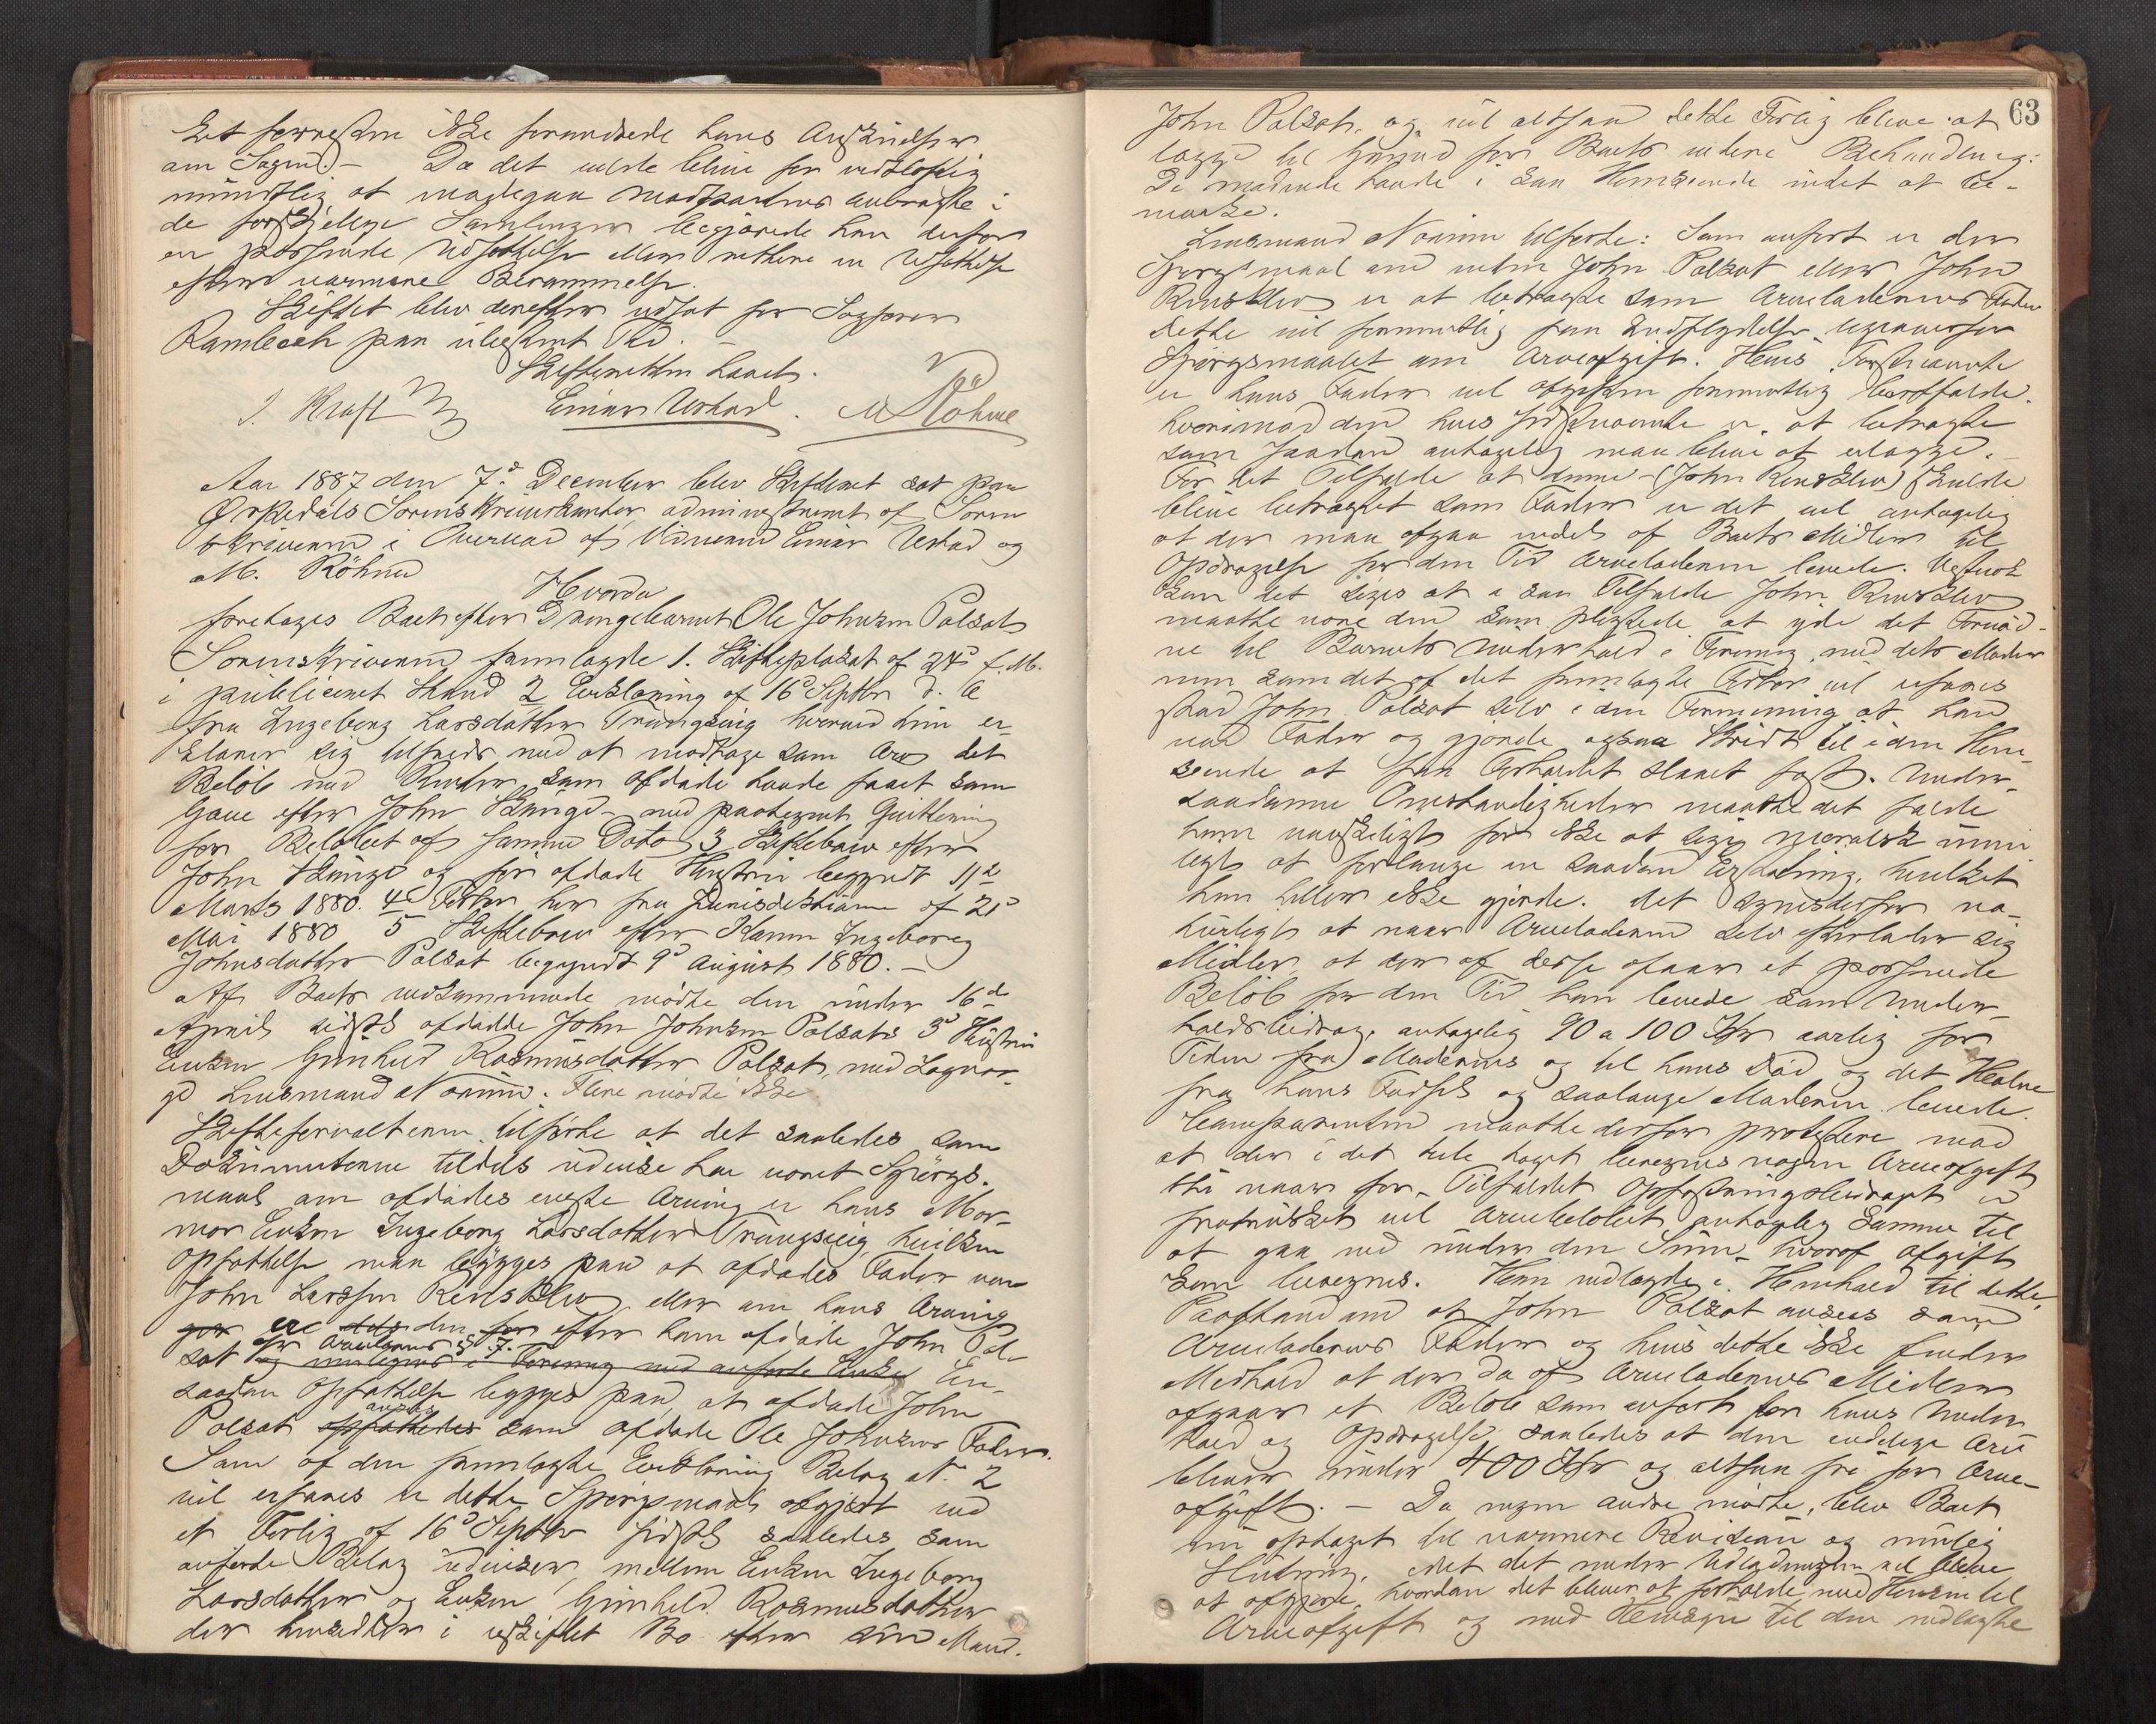 Det forresten ikke forandrede hans Anskuelser
om Sagen. – Da det vilde blive for vidtløftig
mundtlig at modegaa Modpartens anbragte i
de forskjellige Samlinger begjærede han derfor
en passende Udsættelse eller rettere en Udsættelse
efter nærmere Berammelse.
Skiftet blev derefter udsat for Sagfører
Rambech paa ubestemt Tid. –
Skifteretten hævet.
J. Kraft Einar Ustad. M Röhme
Aar 1887 den 7de December blev Skifteret sat paa
Ørkedals Sorenskriverkontor, administreret af Soren
skriveren i Overvær af Vidnerne Einar Ustad og
M. Röhme
Hvorda
foretages Boet efter Drengebarnet Ole Johnsen Polsat
Sorenskriveren fremlagde 1. Skifteplakat af 24de f. M.
i publiceret Stand 2 Erklæring af 16de Septbr d. A
fra Ingeborg Larsdatter Trangsvig hvorved hun er-
klærer sig tilfreds med at modtage som Arv det
Beløb med Renter som afdøde havde faaet som
Gave efter John Skinge – med paategnet Quittering
for Beløbet af samme Dato 3 Skiftebrev efter
John Skinge og før afdøde Hustru begyndt 11te
Marts 1880. 4de Attest her fra Jurisdiktionen af 21de
Mai 1880 5 Skiftebrev efter Karen Ingeborg
Johnsdatter Polsat begyndt 9de August 1880. –
Af Boets vedkommende mødte den under 16de
April sidstl afdøde John Johnsen Polsats 3de Hustru
Enken Gunhild Rasmusdatter Polsat, med Lagvær-
ge Lensmand Noreim. Flere mødte ikke
Skifteforvalteren tilførte at det saaledes som
Dokumenterne tildels udvise har været Spørgs-
maal om afdødes eneste Arving er hans Mor-
mor Enken Ingeborg Larsdatter Trangsvig, hvilken
Opfattelse maa bygges paa at afdødes Fader var
John Larssen Rensklev eller om hans Arving
er den efter ham afdøde John Pol-
sat efter Arvelovens § 7. En
saadan Opfattelse bygges paa, at afdøde John
Polsat ansees som afdøde Ole Johnsens Fader.
Som af den fremlagte Erklæring Bilag No 2
vil erfares er dette Spørgsmaal afgjort ved
et Forlig af 16de Septbr sidstl saaledes som
anførte Bilag udviser, mellem Enken Ingeborg
Larsdatter og Enken Gunhild Rasmusdatter
der hensidder i uskiftet Bo efter sin Mand.
63
John Polsat, og vil altsaa dette Forlig blive at
lægge til Grund for Boets videre Behandling:
De mødende havde i saa Henseende intet at be-
mærke.
Lensmand Noreim tilførte: Som anført er der
Spørgsmaal om enten John Polsat eller John
Rensklev er at betragte som Arveladerens Fader
dette vil formentlig faa Indflydelse ligeoverfor
Spørgsmaalet om Arveafgift. Hvis Førstnævnte
er hans Fader vil Afgiften formentlig bortfalde.
hvorimod den hvis sidstnævnte er at betragte
som saadan antagelig maa blive at erlægge. –
For det Tilfælde at denne – (John Rensklev) skulde
blive betragtet som Fader er det vel antagelig
at der maa afgaa endel af Boets Midler til
Opdragelse for den Tid Arveladeren levede. Vistnok
kan det siges at i saa Tilfælde John Rensklev
maatte være den som pligtede at yde det Fornød-
ne til Barnets Underhold i Forening med dets Moder
men som det af det fremlagte Attest vil erfares
stod John Polsat selv i den Formening at han
var Fader og gjorde ogsaa Skridt til i den Hen-
seende at faa Forholdet slaaet fast. Under
saadanne Omstændigheder maatte det falde
ham vanskeligt for ikke at sige moralsk umu
ligt at forlange en saadan Erstatning, hvilket
han heller ikke gjorde. Det synes derfor na-
turligt at naar Arveladeren selv efterlader sig
Midler, at der af disse afgaar et passende
Beløb for den Tid han levede som Under-
holdsbidrag, antagelig 90 a 100 Kr aarlig for
Tiden fra Moderens og til hans Død og det Halve
fra hans Fødsel og saalænge Moderen levede.
Comparenten maatte derfor protestere mod
at der i det hele taget beregnes nogen Arveafgift
thi naar for Tilfældet Opfostringsbidraget er
fratrukket vil Arvebeløbet antagelig komme til
at gaa ned under den Sum – hvoraf Afgift
kan beregnes. Han nedlagde i Henhold til dette,
Paastand om at John Polsat ansees som
Arveladerens Fader og hvis dette ikke finder
Medhold at der da af Arveladerens Midler
afgaar et Beløb som anført for hans Under
hold og Opdragelse saaledes at den endelige Arv
bliver under 400 Kr og altsaa fri for Arve-
afgift. – Da ingen andre mødte, blev Boet
nu optaget til nærmere Revision og mulig
Slutning, idet det under Udlodningen vil blive
at afgjøre, hvordan det bliver at forholde med Hensyn til
Arveafgift og med Hensyn til den nedlagte